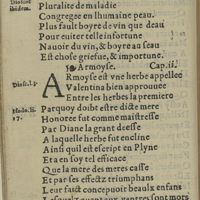 Diosco.
ibidem.
Pluralite de maladie
Congregee en lhumaine peau.
Plus fault boyre de vin que deau
Pour euiter telle infortune
Nauoir du vin, & boyre au seau
Est chose griefue, & importune.
Armoyse. Cap. ii.
Diosc. l. 3.
ARmoyse est vne herbe appellee
Valentina bien approuuee
Entre les herbes la premiero
Parquoy doibt estre dicte mere
Honoree fut comme maistresse
Par Diane la grant deesse
A laquelle herbe fut encline
Ainsi quil est escript en Plyne
Et a en soy tel efficace
Que la mere des meres casse
Et par ses effectz triumphans
Leur faict concepuoir beaulx enfans
ventres sont mors